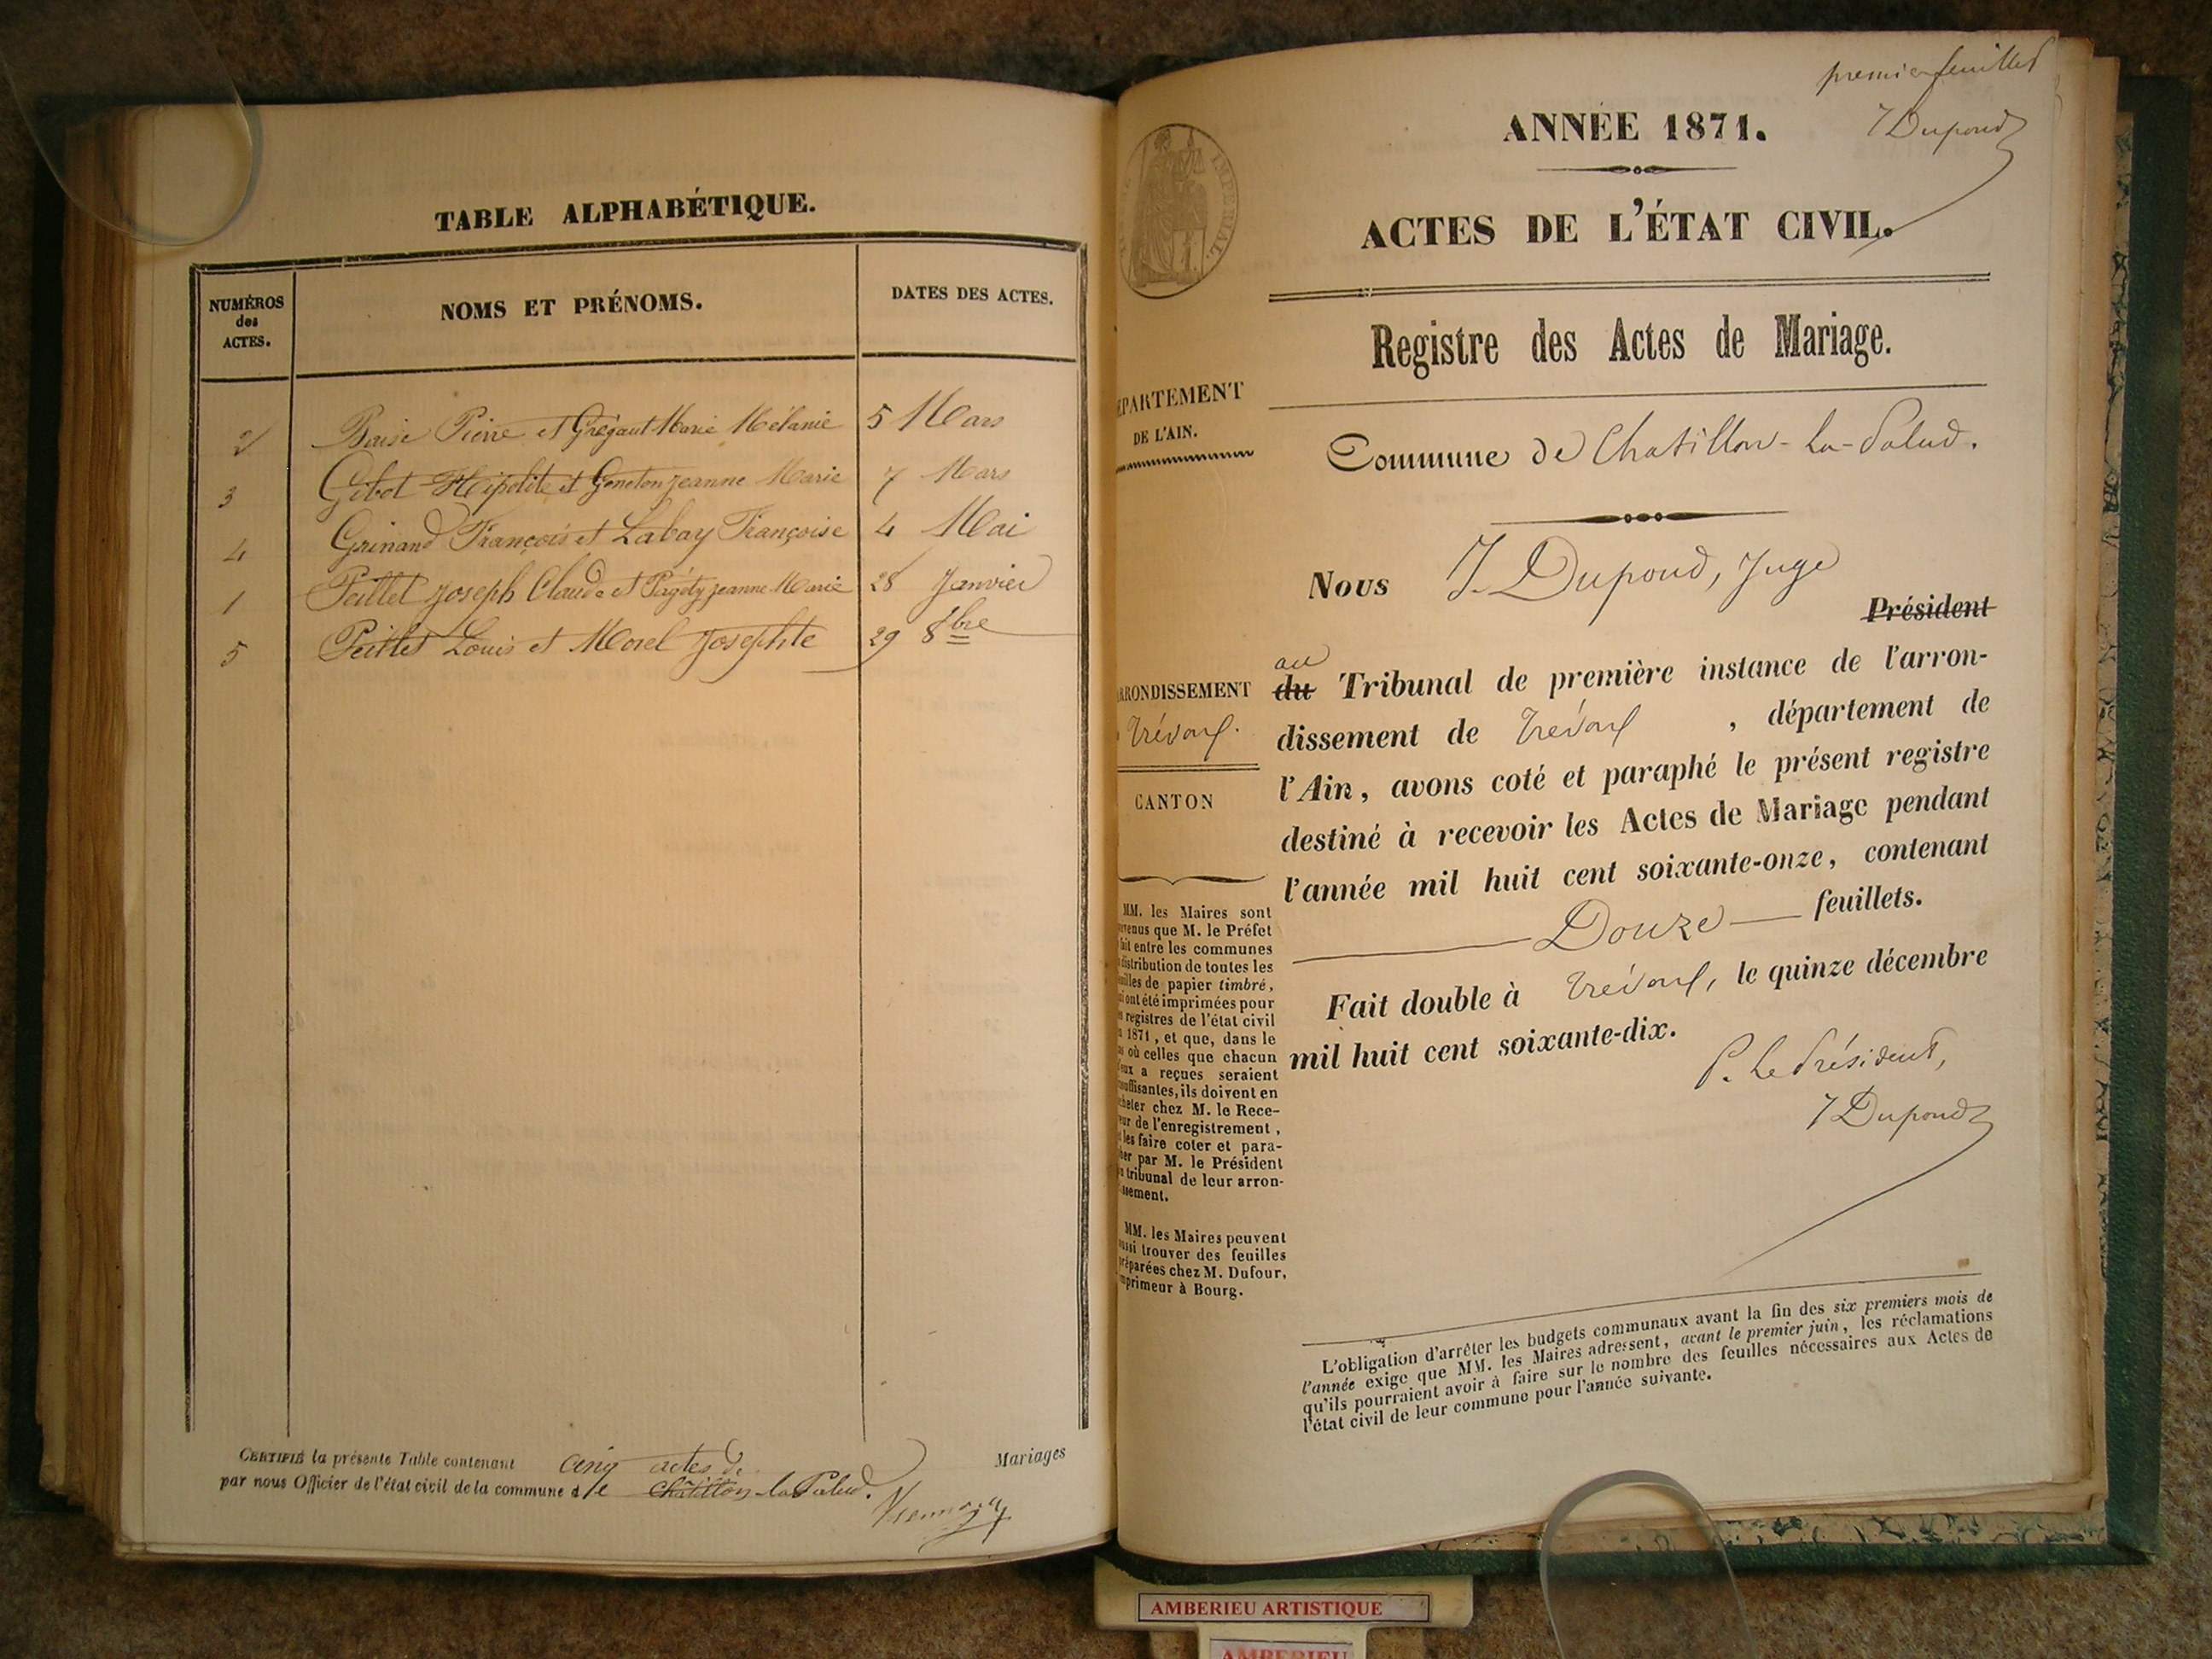 TABLE ALPHABÉTIQUE.
NUMÉROS
des
ACTES.
NOMS ET PRÉNOMS.
DATES DES ACTES.
2 Baise Pierre et Grégaut Marie Mélanie 5 Mars
3 Gibot Hipolite et Geneton Jeanne Marie 7 Mars
4 Grinand François et Labay Françoise 4 Mai
1 Peillet Joseph Claude et Pagéty Jeanne Marie 28 Janvier
5 Peillet Louis et Morel Josephte 29 8bre
CERTIFIÉ la présente Table contenant cinq actes de Mariages
par nous Officier de l'état civil de la commune de Châtillon-la-Palud.
premier feuillet
J Dupond
ANNÉE 1871.
IMPÉRIAL.
ACTES DE L'ÉTAT CIVIL.
Registre des Actes de Mariage.
DÉPARTEMENT
DE L'AIN.
Commune de Chatillon-la-Palud.
Nous J. Dupond, Juge
Président
au
du Tribunal de première instance de l'arron-
dissement de Trévoux, département de
l'Ain, avons coté et paraphé le présent registre
destiné à recevoir les Actes de Mariage pendant
l'année mil huit cent soixante-onze, contenant
Douze feuillets.
Fait double à Trévoux, le quinze décembre
mil huit cent soixante-dix.
P. Le Président,
J Dupond
ARRONDISSEMENT
Trévoux.
CANTON
MM. les Maires sont
venus que M. le Préfet
fait entre les communes
distribution de toutes les
feuilles de papier timbré,
ont été imprimées pour
registres de l'état civil
1871, et que, dans le
où celles que chacun
eux a reçues seraient
insuffisantes, ils doivent en
acheter chez M. le Rece-
eur de l'enregistrement,
les faire coter et para-
pher par M. le Président
tribunal de leur arron-
issement.
MM. les Maires peuvent
aussi trouver des feuilles
préparées chez M. Dufour,
imprimeur à Bourg.
L'obligation d'arrêter les budgets communaux avant la fin des six premiers mois de
l'année exige que MM. les Maires adressent, avant le premier juin, les réclamations
qu'ils pourraient avoir à faire sur le nombre des feuilles nécessaires aux Actes de
l'état civil de leur commune pour l'année suivante.
AMBERIEU ARTISTIQUE
AMBERIEU